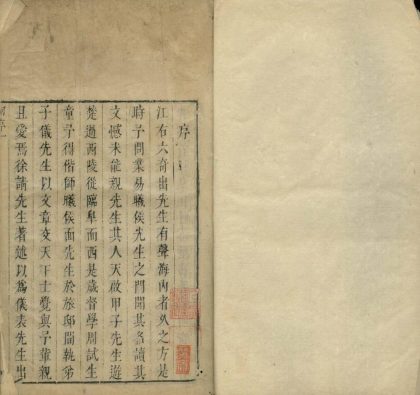 序
江右六奇出先生有聲海內者久之方是
時予問業易職侯先生之門聞其名讀其
文憾未能親先生其人天啟甲子先生遊
楚過西陵從臨皋而西是歲督學周試生
童予得偕師職侯面先生於旅邸間執弟
子儀先生以文章交天下士覺與予輩親
且愛焉徐請先生著述以為儀表先生出